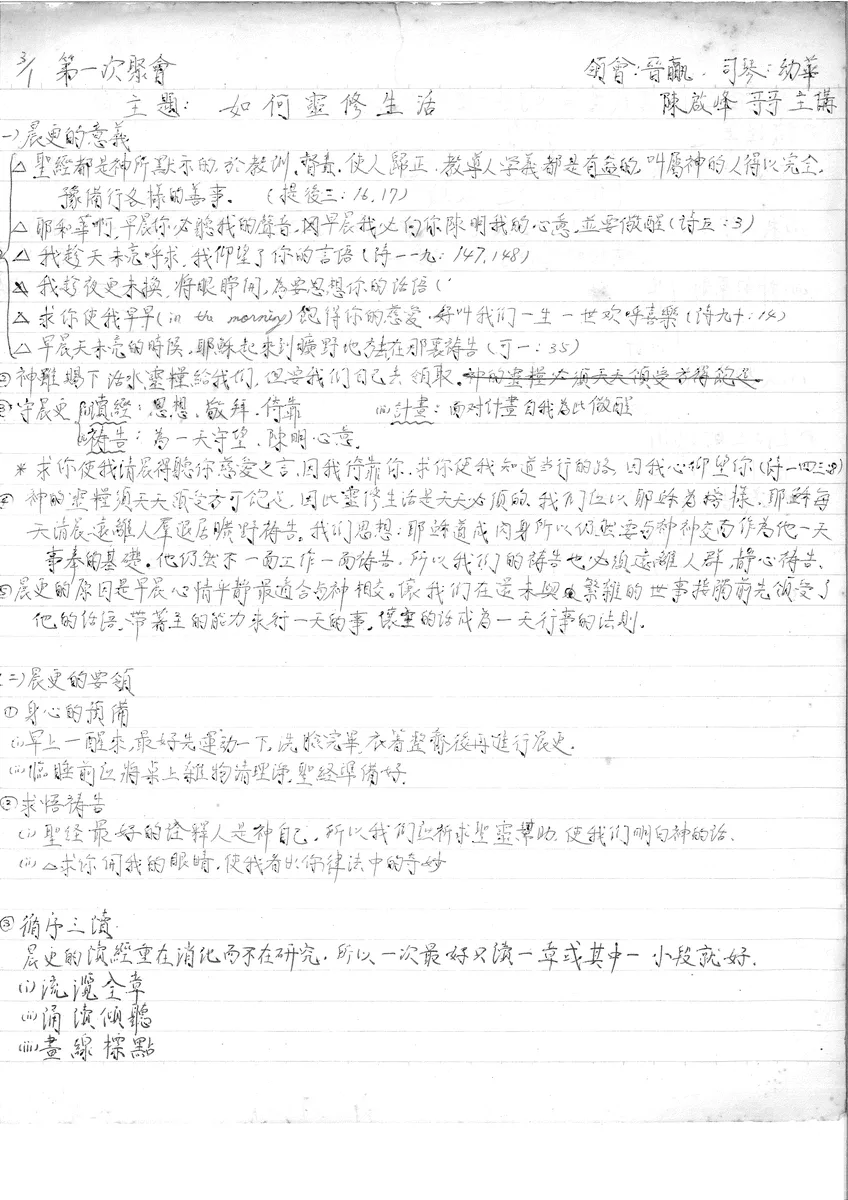 3/1 第一次聚會 領會:晉贏. 司琴:幼華
主題: 如何靈修生活 陳啟峰 哥哥 主講
一)晨更的意義
△ 聖經都是神所默示的,於教訓.督責.使人歸正.教導人学義都是有益的,叫屬神的人得以完全.
豫備行各樣的善事. (提後三:16,17)
△ 耶和華啊,早晨你必聽我的聲音,因早晨我必向你陳明我的心意,並要儆醒(詩五:3)
△ 我趁天未亮呼求,我仰望了你的言語(詩一一九:147,148)
△ 我趁夜更未換,將眼睜開,為要思想你的話語(
△ 求你使我早早(in the morning)飽得你的慈愛.好叫我们一生一世欢呼喜樂(詩九十:14)
△ 早晨天未亮的時候,耶穌起來到曠野地方去在那裏祷告(可一:35)
②神雖賜下活水,靈糧給我们,但要我们自己去領取.神的靈糧必須天天領受方得飽足.
③守晨更 (i)讀經:思想.敬拜.倚靠 (iii)計畫:面对计畫自我為此儆醒
(ii)祷告:為一天守望.陳明心意.
* 求你使我清晨得聽你慈愛之言,因我倚靠你,求你使我知道当行的路,因我心仰望你(詩一四三:8)
④ 神的靈糧須天天領受方可飽足,因此靈修生活是天天必須的.我们应以耶穌為榜樣,耶穌每
天清晨遠離人羣退居曠野祷告.我们思想:耶穌道成肉身所以仍然要与神神交而作為他一天
事奉的基礎.他仍然不一面工作一面祷告,所以我们的祷告也必須遠離人群,靜心祷告.
⑤晨更的原因是早晨心情平静最適合与神相交。讓我们在還未與繁雜的世事接觸前先領受了
他的話語,帶著主的能力來行一天的事,讓主的話成為一天行事的法則.
(二)晨更的要領
①身心的預備
(i)早上一醒來,最好先運動一下,洗臉完畢,衣著整齊後再進行晨更.
(ii)臨睡前应將桌上雜物清理淨,聖経準備好.
②求悟祷告
(i)聖经最好的詮釋人是神自己,所以我们应祈求聖靈幫助,使我们明白神的話.
(ii)△求你開我的眼睛,使我看出你律法中的奇妙
③循序三讀.
晨更的讀經重在消化而不在研究,所以一次最好只讀一章或其中一小段就好.
(i)流灠全章
(ii)誦讀傾聽
(iii)畫線標點